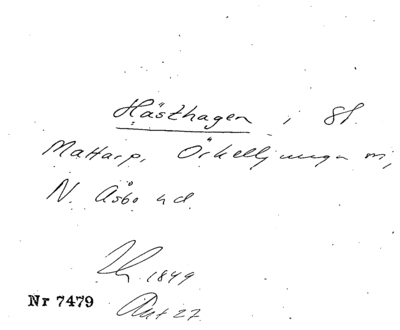 Hästhagen i St.
Mattarp, Örkelljunga sn,
N. Åsbo hd.
1849
Nr 7479
Akt 27